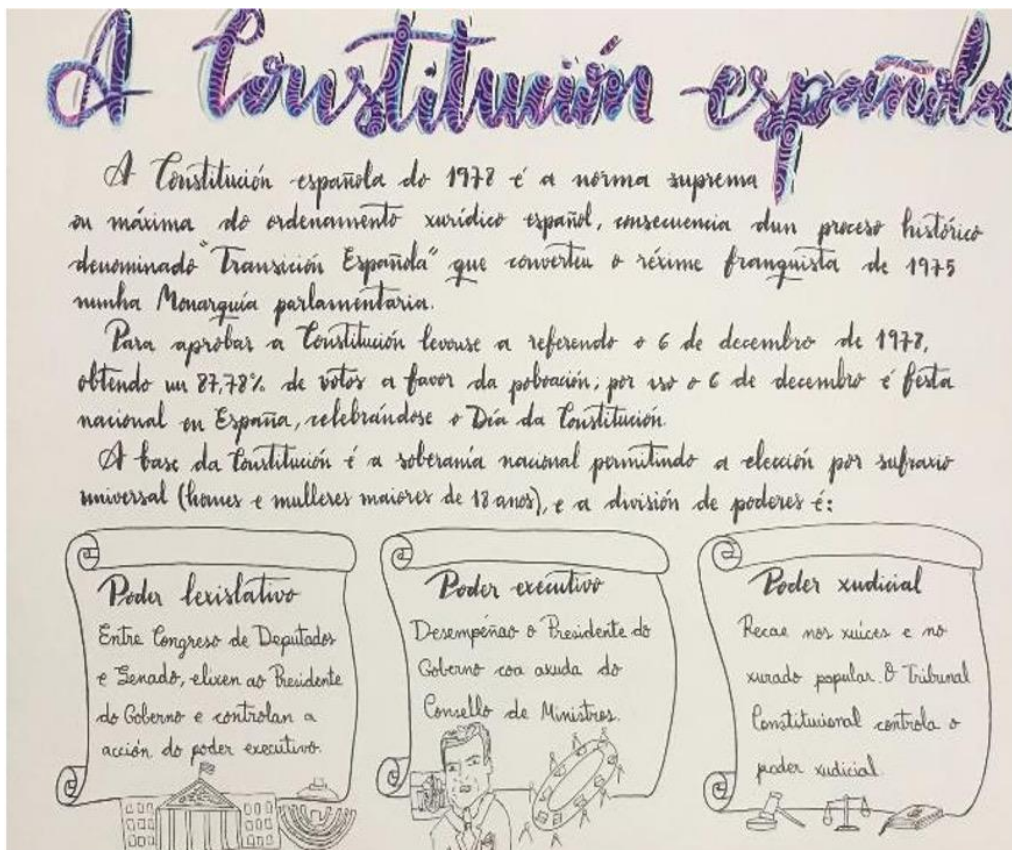 A Constitución española
A Constitución española do 1978 é a norma suprema
ou máxima do ordenamento xurídico español, consecuencia dun proceso histórico
denominado "Transición Española" que converteu o réxime franquista de 1975
nunha Monarquía parlamentaria.
Para aprobar a Constitución levouse a referendo o 6 de decembro de 1978,
obtendo un 87,78% de votos a favor da poboación; por iso o 6 de decembro é festa
nacional en España, celebrándose o Día da Constitución.
A base da Constitución é a soberanía nacional permitindo a elección por sufraxio
universal (homes e mulleres maiores de 18 anos), e a división de poderes é:
Poder lexislativo
Entre Congreso de Deputados
e Senado, elixen ao Presidente
do Goberno e controlan a
acción do poder executivo.
Poder executivo
Desempéñao o Presidente do
Goberno coa axuda do
Consello de Ministros.
Poder xudicial
Recae nos xuíces e no
xurado popular. O Tribunal
Constitucional controla o
poder xudicial.